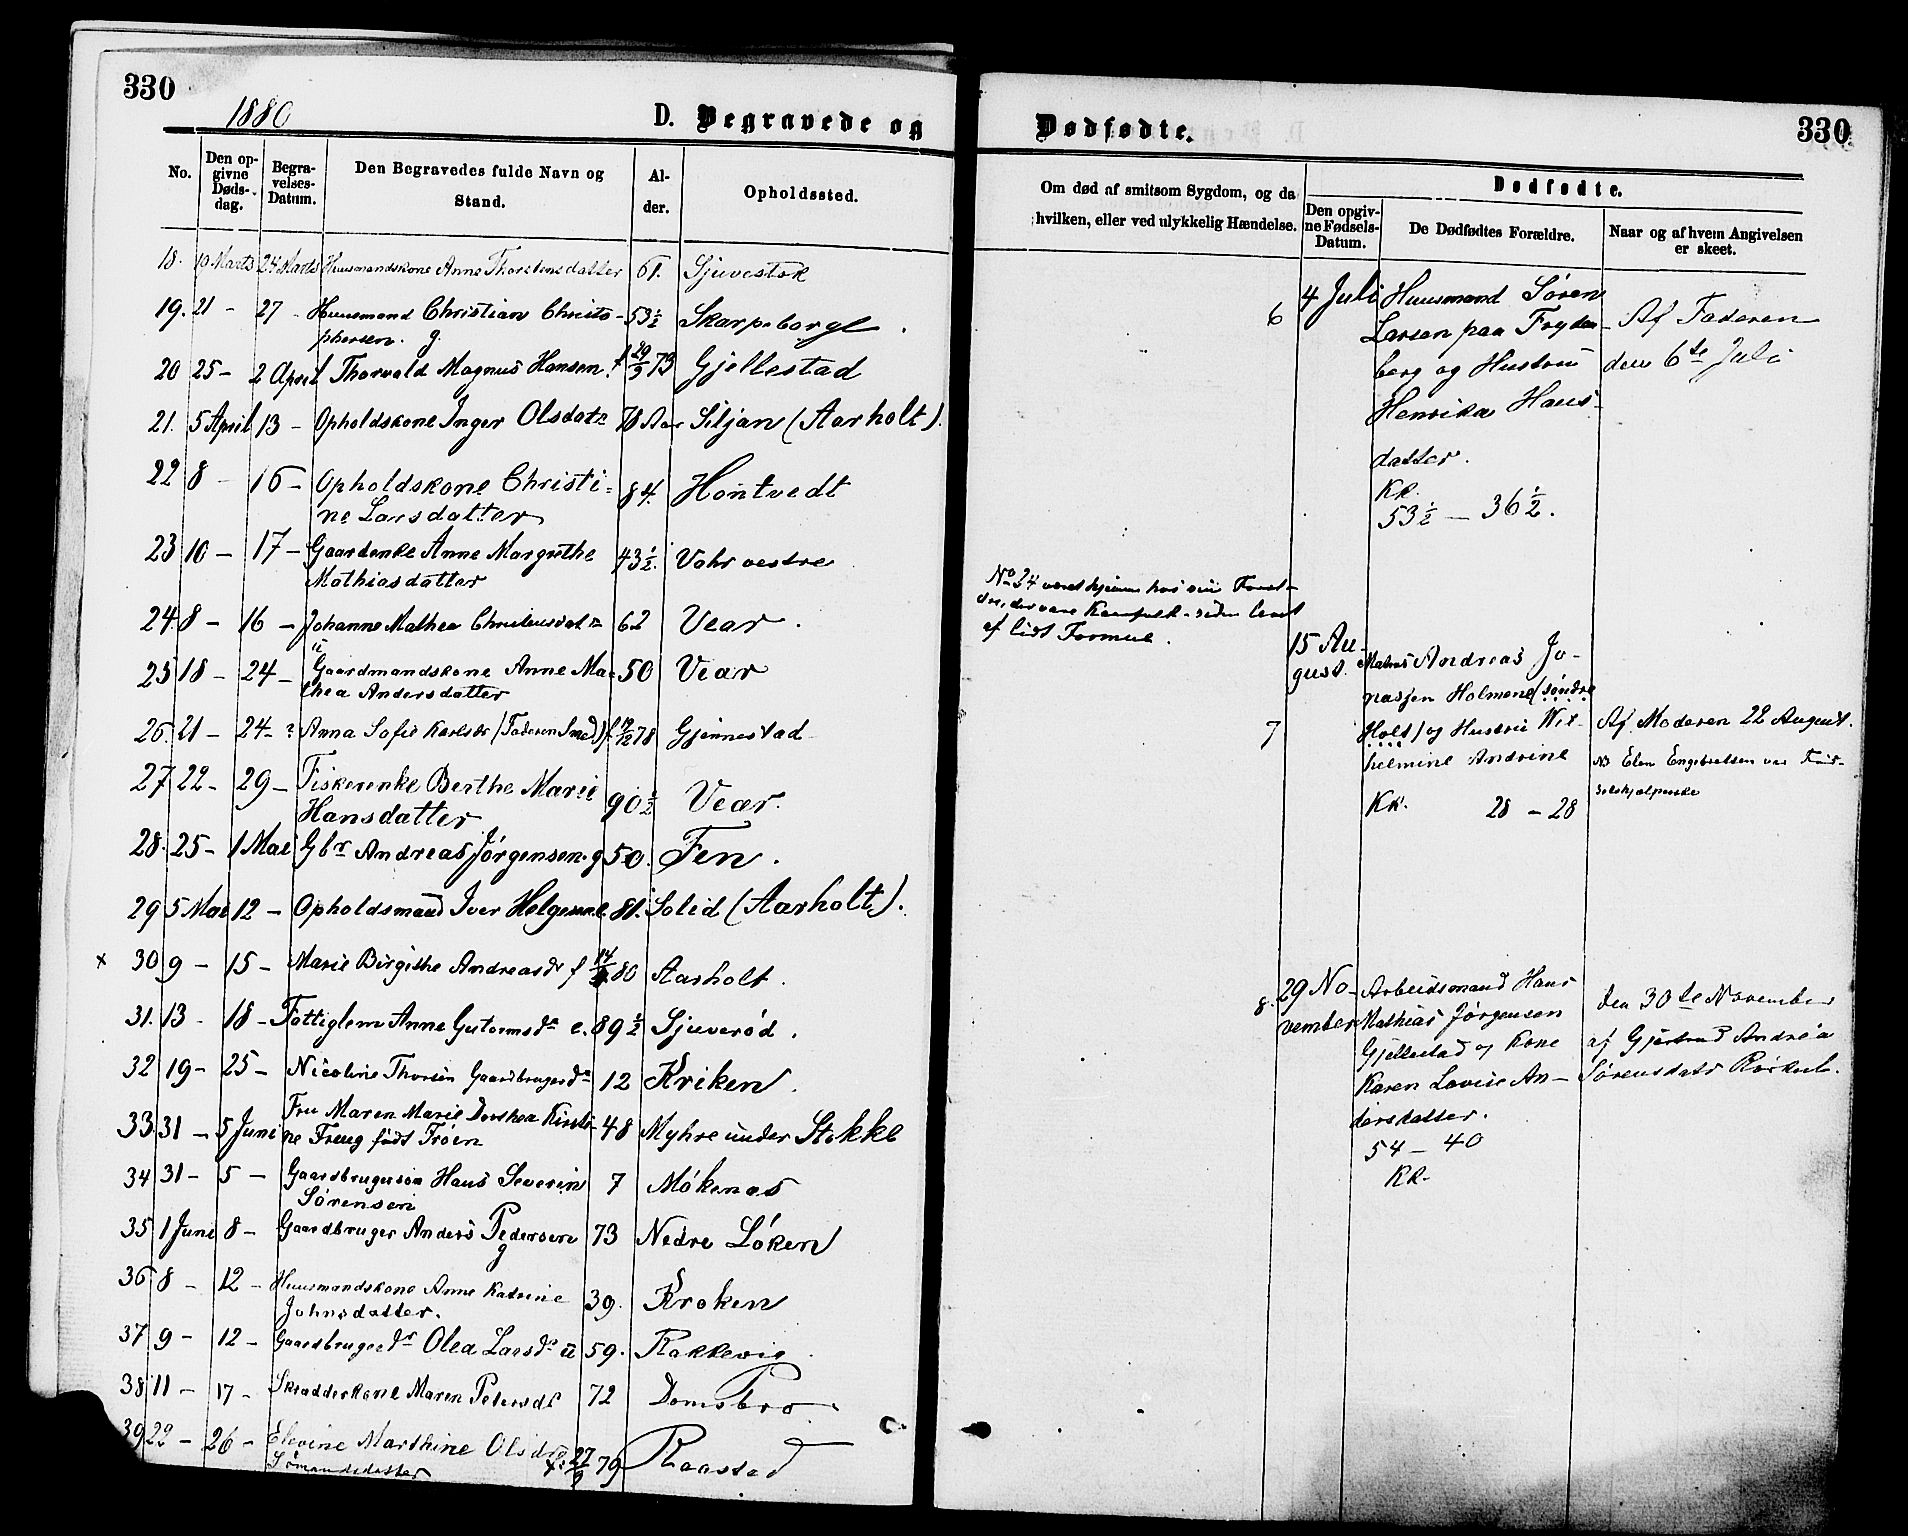 330
1880
D. Begravede og
No.
Den opgivne Døds-dag.
Begravelses-Datum.
Den Begravedes fulde Navn og Stand.
Alder.
Opholdssted.
18. 10 Marts 24 Marts Huusmandskone Anne Thorstensdatter 61. Sjuvestok
19. 21 - 27 - Huusmand Christian Christo- 53½ Skarpeborgl.
phersen. g.
20 25 - 2 April Thorvald Magnus Hansen. f 29/9 79 Gjellestad
21. 5 April 13 - Opholdskone Inger Olsdatr 78 Aar Siljan (Aarholt).
22 8 - 16 - Opholdskone Christi- 84. Hontvedt
ne Larsdatter
23 10 - 17 - Gaardenke Anne Margrethe 43½. Vohr vestre
Mathiasdatter
24. 8 - 16 - Johanne Mathea Christensdatr 62 Vear.
25 18 - 24 - Gaardmandskone Anne Ma- 50 Vear
thea Andersdatter
26. 21 - 24 - Anna Sofie Karlsdr (Faderen Smed) f 12/12 78 Gjennestad
27 22 - 29 - Fiskerenke Berthe Marie 90½ Vear.
Hansdatter
28. 25 - 1 Mai Gbr Andreas Jørgensen. g 50. Fen.
29 5 Mai 12 - Opholdsmand Iver Helgesen e. 81. Solid (Aarholt).
x 30 9 - 15 - Marie Birgithe Andreasdr f 80 Aarholt.
31. 13 - 18 - Fattiglem Anne Gutormsdr e. 89½ Sjuverød.
32 19 - 25 - Nicoline Thorsen Gaardbrugerdr 12 Kriken.
33 31 - 5 Juni Fru Maren Marie Dorthea Kirsti- 48 Myhre under Stokke
ne Freug født Trøen
34 31 - 5 - Gaardbrugersøn Hans Severin 7 Møkenes
Sørensen
35 1 Juni 8 - Gaardbruger Anders Pedersen 73 Nedre Løken
g
36 8 - 12 - Huusmandskone Anne Katrine 39. Kroken
Johnsdatter.
37 9 - 12 - Gaardbrugerdr Olea Larsdr u 59. Rakkevig.
38 11 - 17 - Skradderkone Maren Petersdr 72 Domsbro.
39 22 - 26 - Elevine Marthine Olsdr f. 27/9 79 Raastad
Sømandsdatter
Dødfødte.
330
Om død af smitsom Sygdom, og da
hvilken, eller ved ulykkelig Hændelse.
Dødfødte.
Den opgiv-
ne Fødsels-
Datum.
De Dødfødtes Forældre.
Naar og af hvem Angivelsen
er skeet.
6 4 Juli Huusmand Søren
Larsen paa Frydn- Af Faderen
berg og Hustru den 6te Juli
Henrika Hans-
datter.
KK.
53½ - 36½.
No 24 været hjemme hos sin Foræl-
dre, der vare Kaarfolk - siden levet
af lidt Formue.
15 Au-
gust. Mathias Andreas Jo-
nassen Holmene (søndre
7 Holt) og Hustru Wil- Af Moderen 22 August.
helmine Andrine NB Elen Engebretsen var Fød-
selshjælperske
KK. 28 - 28
8. 29 No-
vember Arbeidsmand Hans
Mathias Jørgensen
Gjellestad og Kone
Karen Lovise An-
dersdatter.
54 - 40
KK.
den 30te November
af Gjertrud Andréa
Sørensdatr